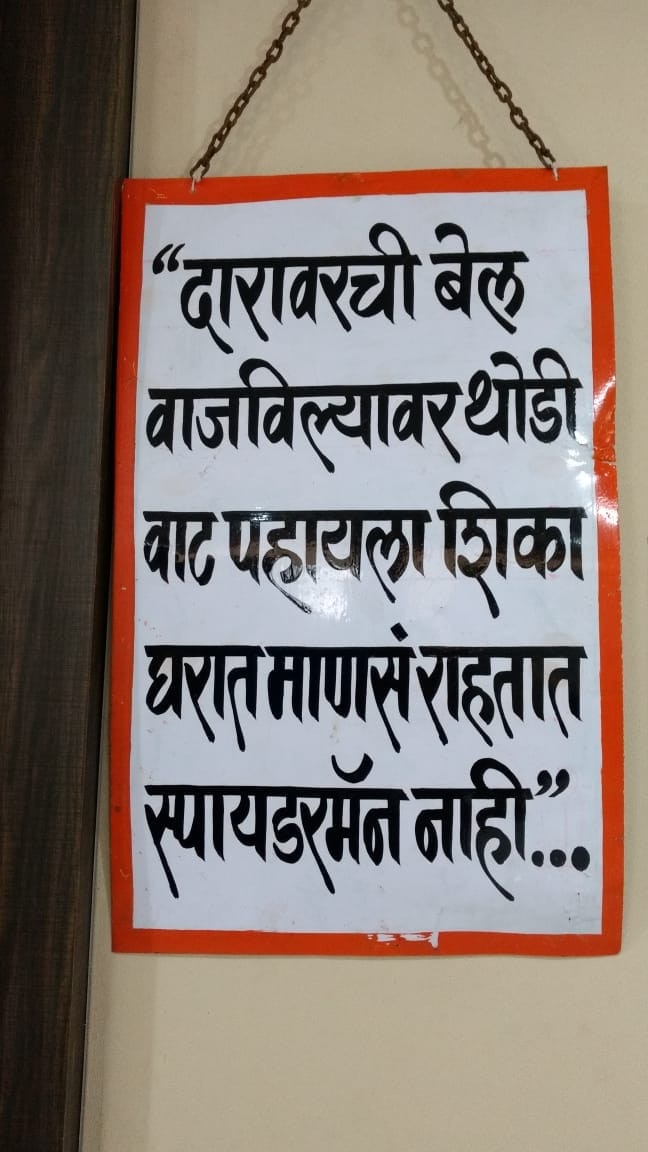 “दारावरची बेल
वाजविल्यावर थोडी
वाट पहायला शिका
घरात माणसं राहतात
स्पायडरमॅन नाही”...